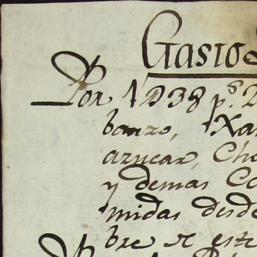 Gastos
Por 1938 p.s 2
banzo, Xa
azucar, Cho
y demas Co
midas desde
bre de este